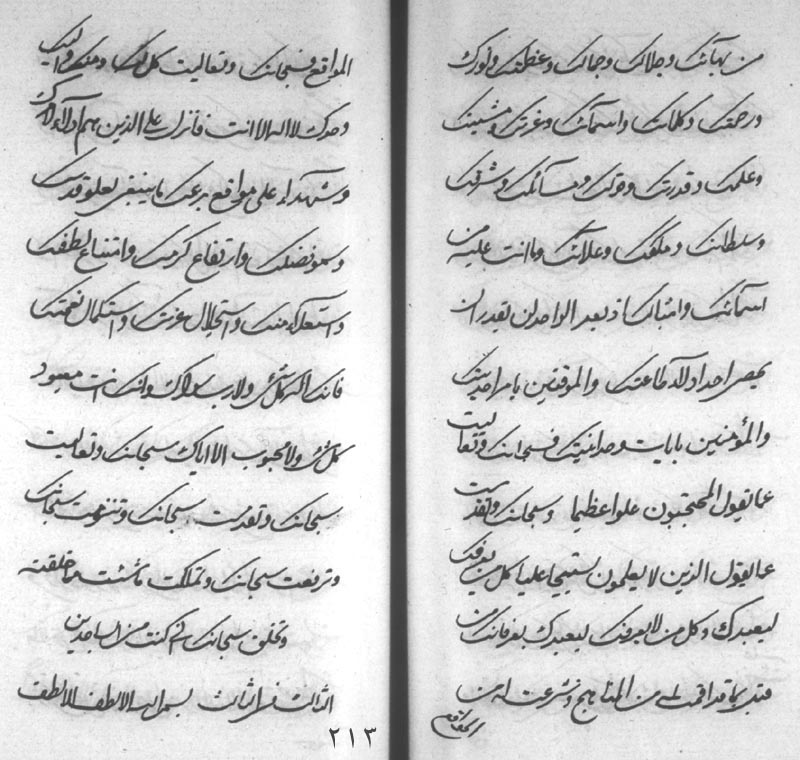 من بهآئك وجلالك وجمالك وعظمتك ونورك
ورحمتك وكلماتك واسمآئك وعزتك ومشيتك
وعلمك وقدرتك وقولك ومسآئلك وشرفك
وسلطانك وملكك وعلائك وما انت عليه من
اسمآئك وامثالك اذ بعد الواحد لن يقدر ان
يحصى احد ادلآء طاعتك والموقنين بامر احديتك
والمؤمنين بايات وحدانيتك فسبحانك وتعاليت
عما يقول المحتجبون علوا عظيما وسبحانك وتقدست
عما يقول الذين لا يعلمون تسبيحا عليا كل من يعرفك
ليعبدك وكل من لا يعرفك ليعبدك بعرفانك من
قبل بما قد اقمت له من المناهج وشرعت له من
المواقع
المواقع فسبحانك وتعاليت كل لك ومنك واليك
وحدك لا اله الا انت فانزل على الذين هم ادلآء لامرك
وشهدآء على مواقع بدعك ما ينبغى لعلو قدسك
وسمو فضلك وارتفاع كرمك وامتناع لطفك
واستعلآء منك واستجلال عزتك واستكمال نعمتك
فانك اله كل شئ ولا رب سواك وانك انت معبود
كل شئ ولا محبوب الا اياك سبحانك وتعاليت
سبحانك وتقدست سبحانك وتنزهت سبحانك
وترفعت سبحانك وتملك ما شئت مما خلقته
وتخلق سبحانك انى كنت من الساجدين
الثالث فى الثالث بسم الله الالطف الالطف
٢١٣